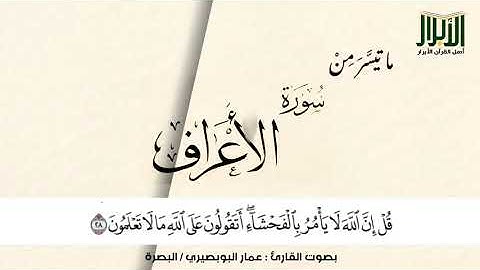 الأبرار
أهل القرآن الأبرار
ما تيسَّرَ مِنْ
سُورَة
الأَعْرَاف
قُلْ إِنَّ اللَّهَ لَا يَأْمُرُ بِالْفَحْشَاءِ ۖ أَتَقُولُونَ عَلَى اللَّهِ مَا لَا تَعْلَمُونَ ٢٨
بصوت القارئ : عمار البوبصيري / البصرة